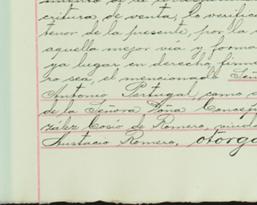 critura de venta, la verifica
tenor de la presente, por la
aquella mejor via y forma
ya lugar en derecho, firme
ro sea, el mencionado Señ
Antonio Portugal como
de la Señora Doña Concep
zález Cosio de Romero, viuda
Austacio Romero, otorga